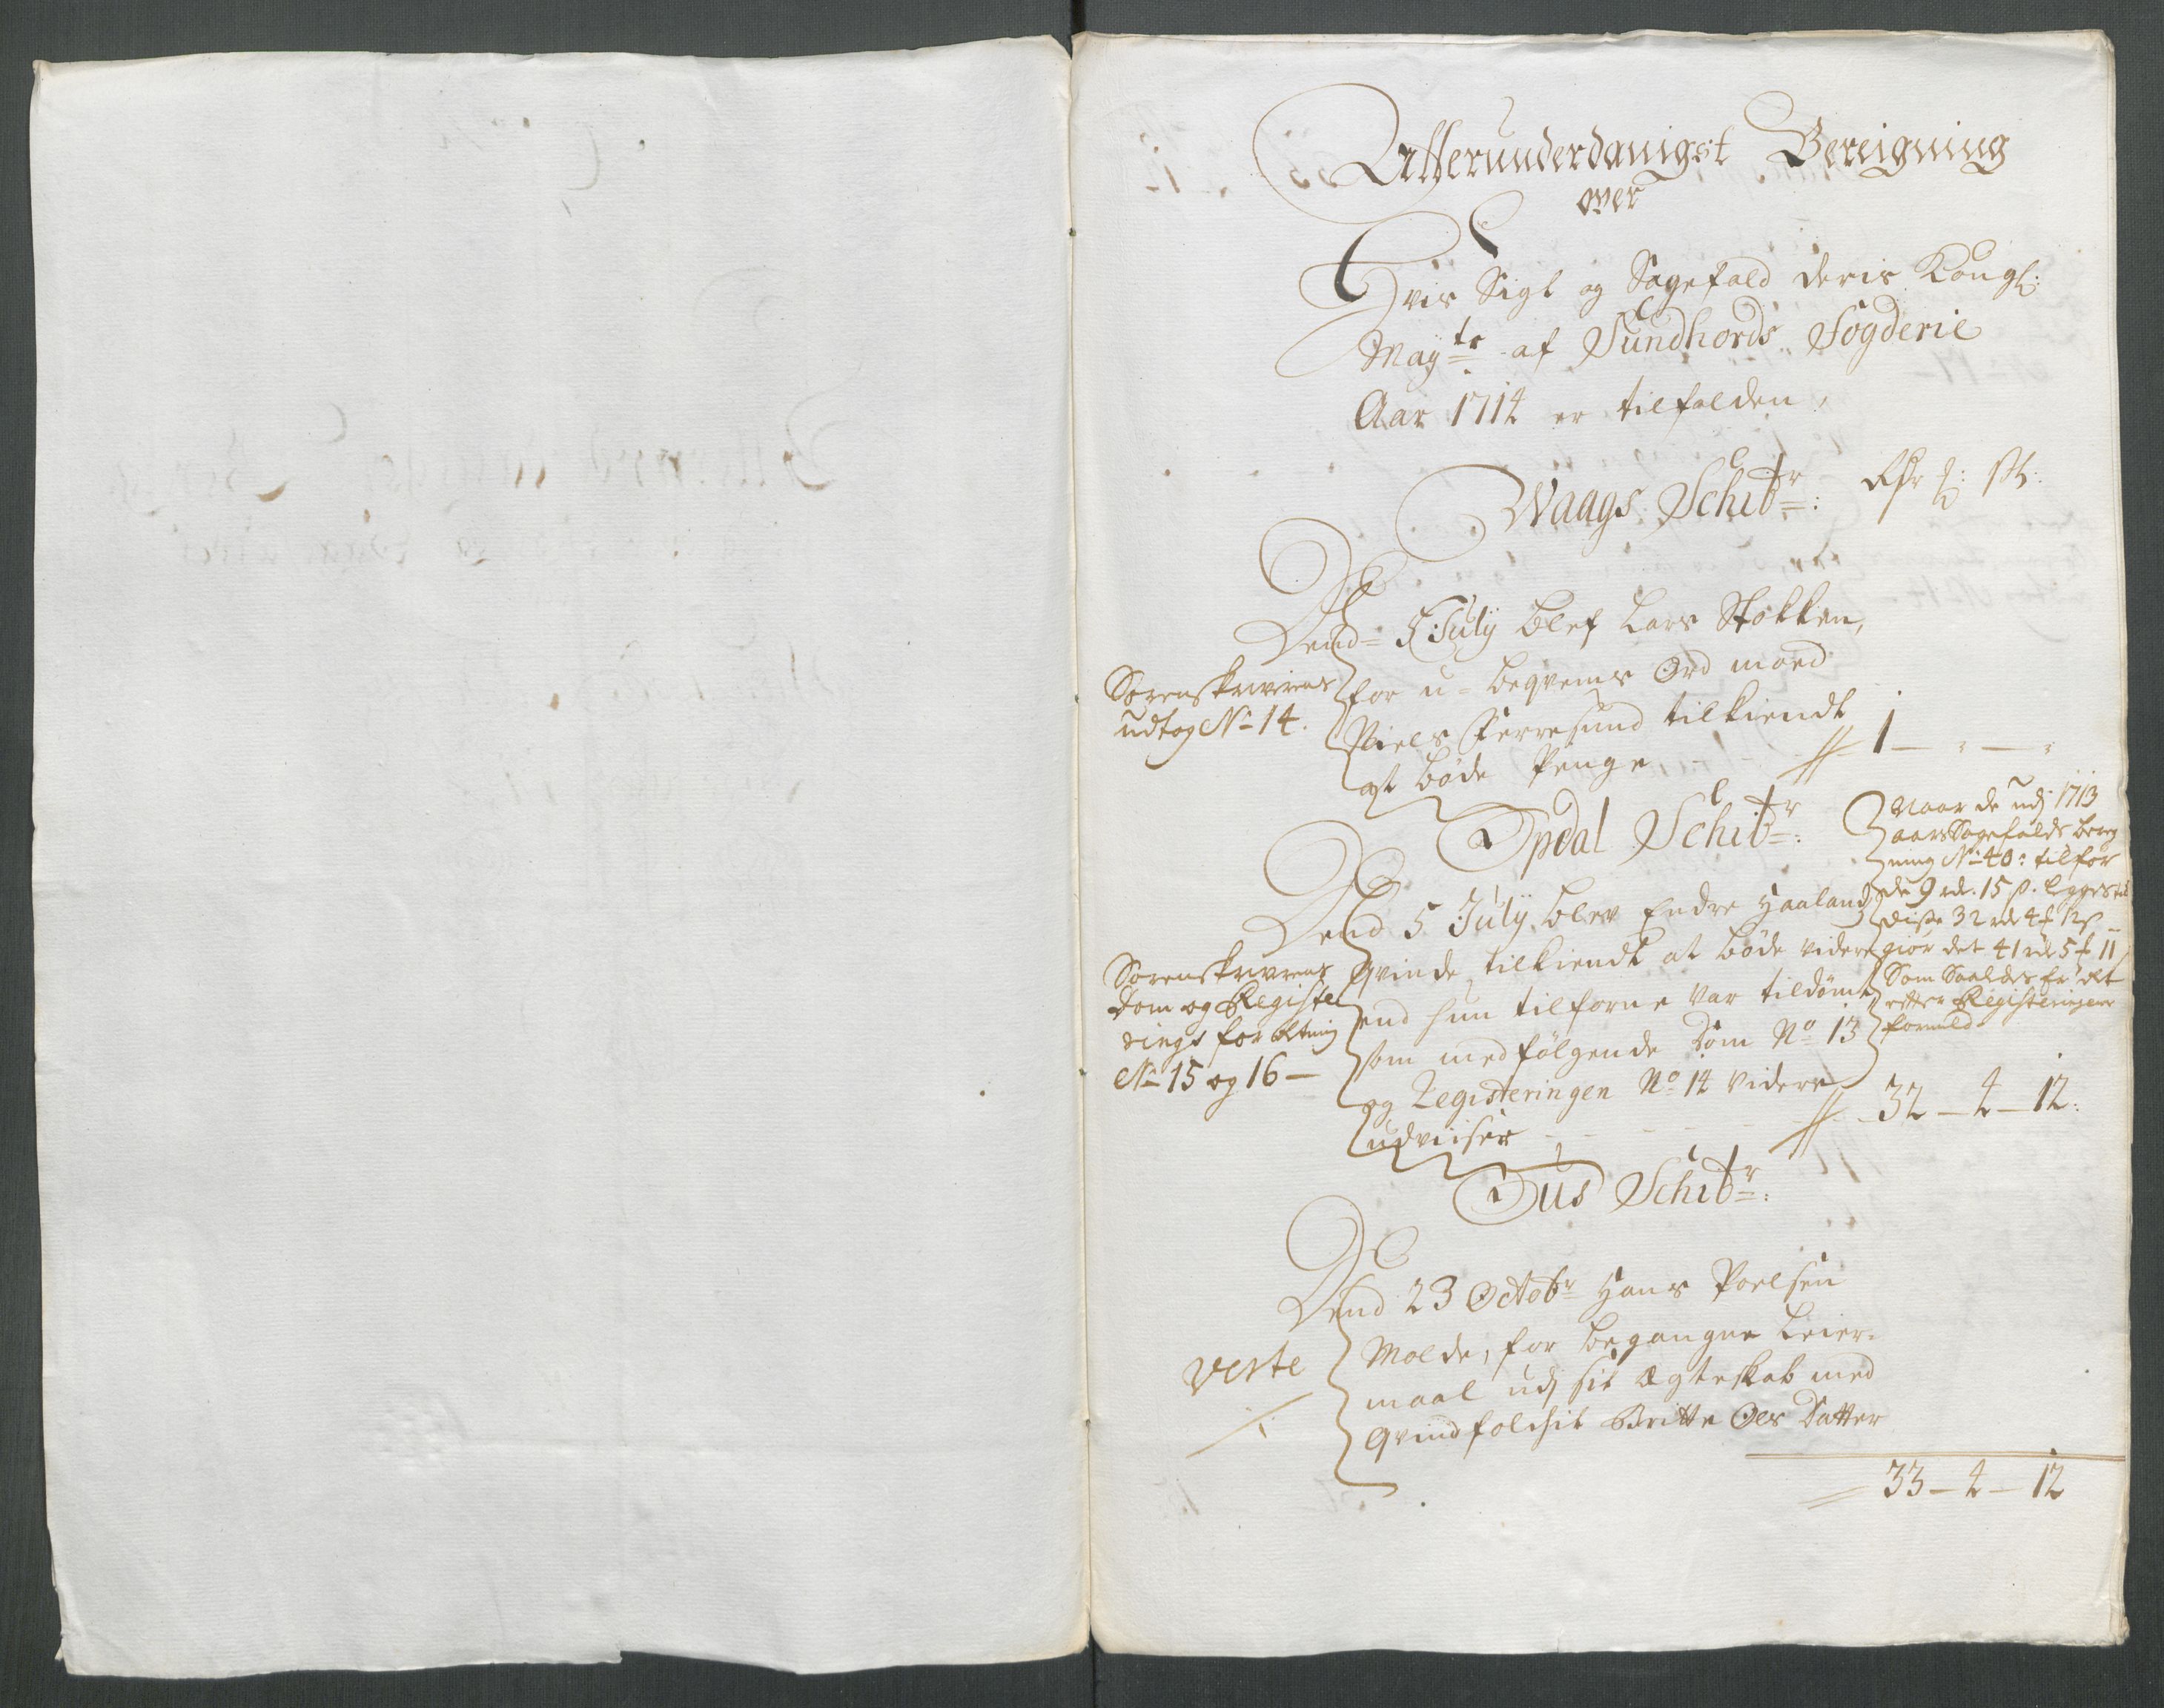 Allerunderdanigst Bereigning
over
Hvis Sigt og Sagefald deris Kongl:
Mayts af Sundhords Fogderie
Aar 1714 er tilfalden,
Waags Schibr: Rdr ß:
Dend 5 July blef Lars Stokken,
for u-beqvems Ord moed
Niels Ferresund tilkiendt
at bøde Penge 1 - " - "
Sorenskriverens
udtog No 14.
Opdal Schibr:
Dend 5 July blev Endre Haaland
Qvinde tilkiendt at bøde videre
end hun tilforne var tildømt
som medfølgende Dom No 13
og Registeringen No 14 videre
udviiser - 32 - 4 - 12:
Sorenskrivrens
dom og Registe
rings forretning
No 15 og 16 -
Naar de udj 1713
aars Sagefalds bereg
ning No 40: tilfør
de 9 rdr. 15 ß. legges til
disse 32 rdr 4 12 ß
giør det 41 rdr 5 11
Som Saaledes er
efter Registeringens
formeld.
Øus Schibr:
Dend 23 Octobr Hans Poelsen
Molde, for begangne Leier-
maal udj sit Ægteskab med
Qvindfolchit Britte Ols Datter
verte
33 - 4 - 12